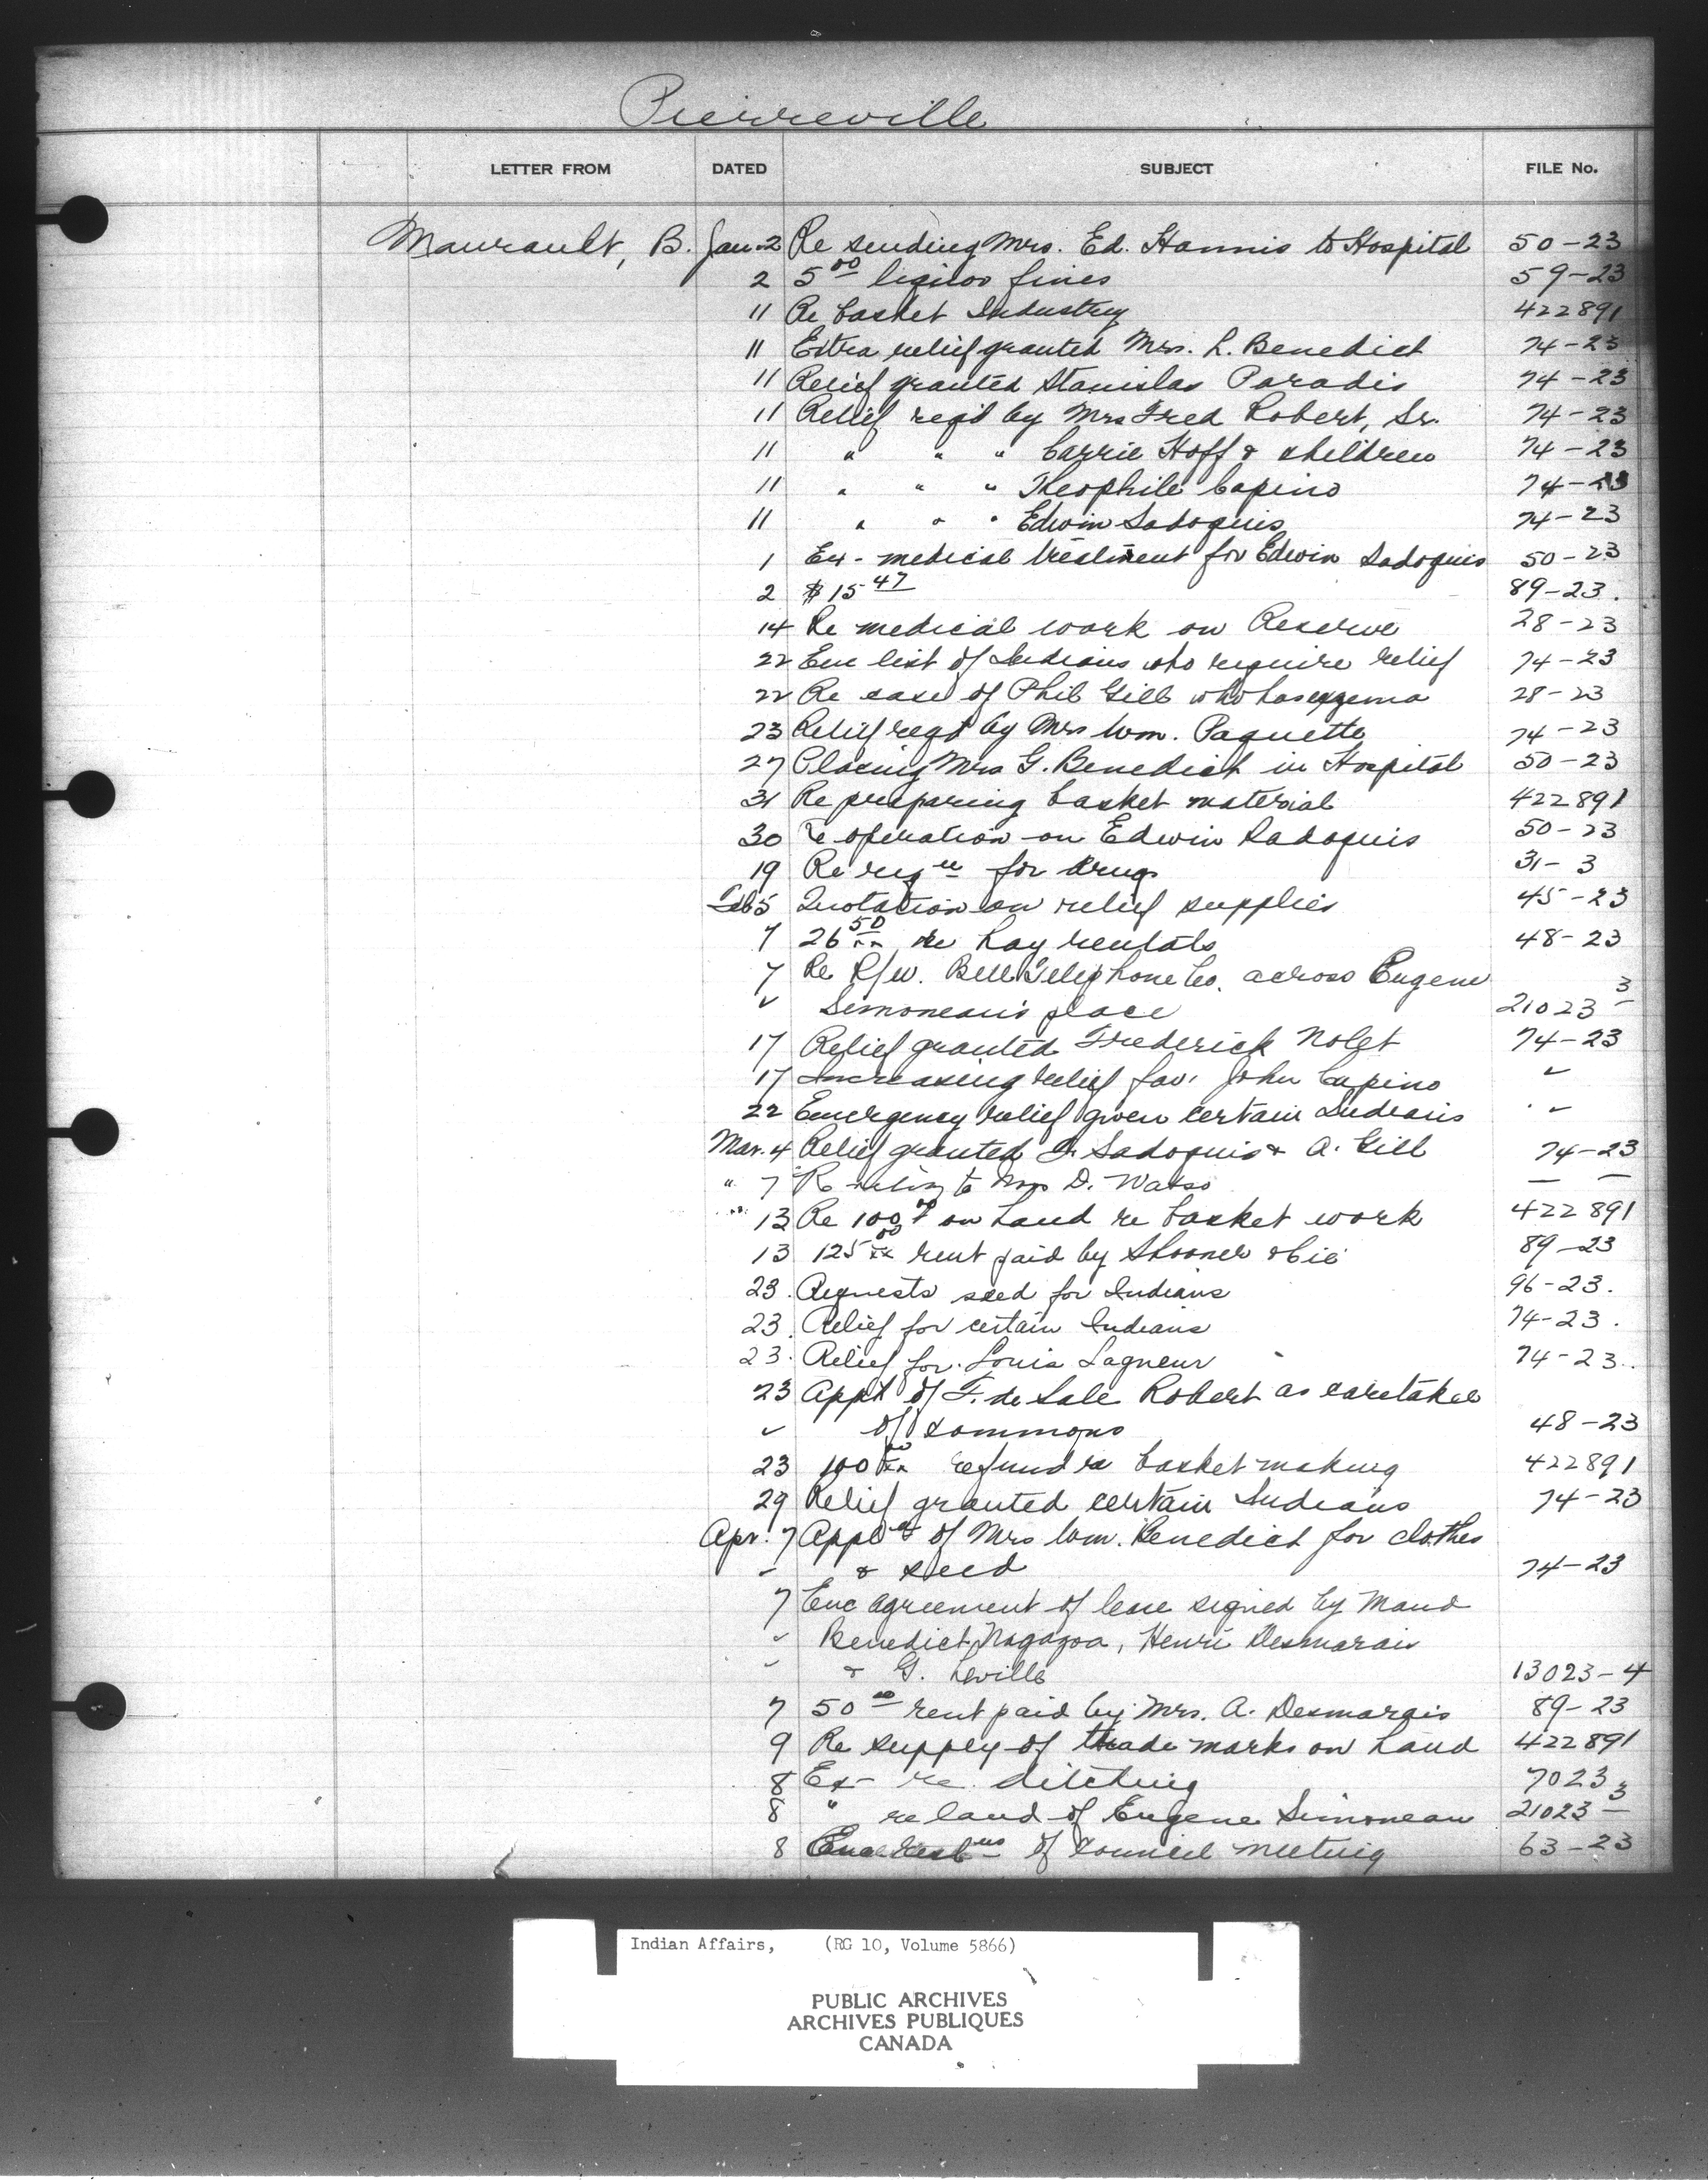 Pierreville
LETTER FROM DATED SUBJECT FILE No.
Maurault, B. Jan. 2 Re sending Mrs. Ed. Hannis to Hospital 50-23
2 5 00 liquor fines 59-23
11 Re basket Industry 422891
11 Extra relief granted Mrs. L. Benedict 74-23
11 Relief granted Stanislas Paradis 74-23
11 Relief reqd by Mrs Fred Robert, Sr. 74-23
11 " " " Carrie Hoff & children 74-23
11 " " " Theophile Capino 74-23
11 " " " Edwin Sadoquis 74-23
1 Ex- medical treatment for Edwin Sadoquis 50-23
2 $15 47 89-23.
14 Re medical work on Reserve 28-23
22 Enc list of Indians who require relief 74-23
22 Re case of Phil Gill who has eczema 28-23
23 Relief reqd by Mrs Wm. Paquette 74-23
27 Placing Mrs G. Benedict in Hospital 50-23
31 Re preparing basket material 422891
30 Re operation on Edwin Sadoquis 50-23
19 Re reqn for drugs 31-3
Feb 5 Quotation on relief supplies 45-23
7 26 50 xx re hay rentals 48-23
7 Re R/w. Bell Telephone Co. across Eugene
" Simoneau's place 21023-3
17 Relief granted Frederick Nolet 74-23
17 Increasing relief fav. John Capino "
22 Emergency relief given certain Indians "
Mar. 4 Relief granted Sadoquis & A. Gill 74-23
" 7 Re to Mrs D. Watso — —
" 13 Re 100 00 on hand re basket work 422891
13 125 00 xx rent paid by Shooner & Cie 89-23
23. Requests seed for Indians 96-23.
23. Relief for certain Indians 74-23.
23. Relief for Louis Lagueur 74-23.
23 Appt of F. de Sale Robert as caretaker
" of commons 48-23
23 100 00 xx refund re basket making 422891
29 Relief granted certain Indians 74-23
Apr. 7 Appln of Mrs Wm. Benedict for clothes
" & seed 74-23
7 Enc agreement of lease signed by Maud
" Benedict, Nagazoa, Henri Desmarais
" & G. Leville 13023-4
7 50 00 rent paid by Mrs. A. Desmarais 89-23
9 Re supply of trade marks on hand 422891
8 Ex- re ditching 7023
8 " re land of Eugene Simoneau 21023-3
8 Enc of Council meeting 63-23
Indian Affairs, (RG 10, Volume 5866)
PUBLIC ARCHIVES
ARCHIVES PUBLIQUES
CANADA